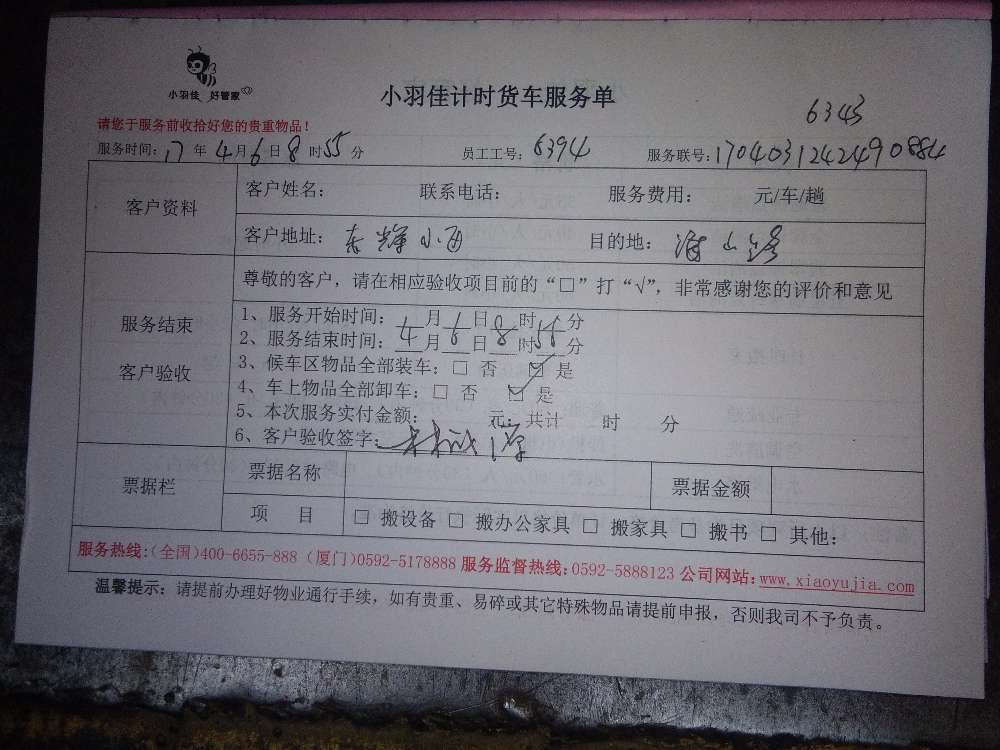 小羽佳 好管家
小羽佳计时货车服务单
6343
请您于服务前收拾好您的贵重物品！
服务时间：17年4月6日8时55分 员工工号：6394 服务联号：1704031242490884
客户资料
客户姓名： 联系电话： 服务费用： 元/车/趟
客户地址：东辉小 目的地：山路
服务结束
客户验收
尊敬的客户，请在相应验收项目前的“□”打“√”，非常感谢您的评价和意见
1、服务开始时间：4月6日8时55分
2、服务结束时间：__月__日__时__分
3、候车区物品全部装车：□ 否 ☑ 是
4、车上物品全部卸车：□ 否 ☑ 是
5、本次服务实付金额： 元，共计 时 分
6、客户验收签字：
票据栏
票据名称 票据金额
项 目 □ 搬设备 □ 搬办公家具 □ 搬家具 □ 搬书 □ 其他：
服务热线：(全国)400-6655-888 (厦门)0592-5178888 服务监督热线：0592-5888123 公司网站：www.xiaoyujia.com
温馨提示：请提前办理好物业通行手续，如有贵重、易碎或其它特殊物品请提前申报，否则我司不予负责。